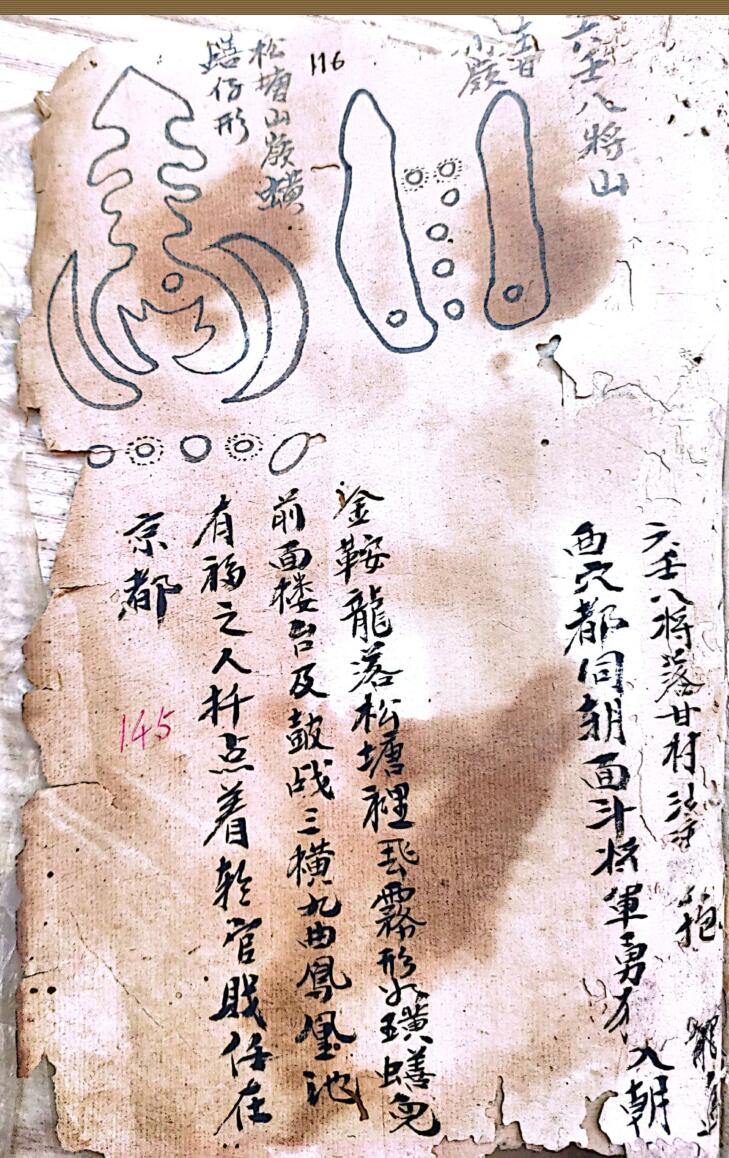 六壬八將山
116
松塘山嶺蟥
蟮仔形
六壬八將落甘村
入朝
西穴都同朝面斗將軍勇才
金鞍龍落松塘裡飛霧形如蟥蟮兒
前面楼台及鼓战三横九曲鳳凰池
有福之人扦点着翰官職任在
京都
145